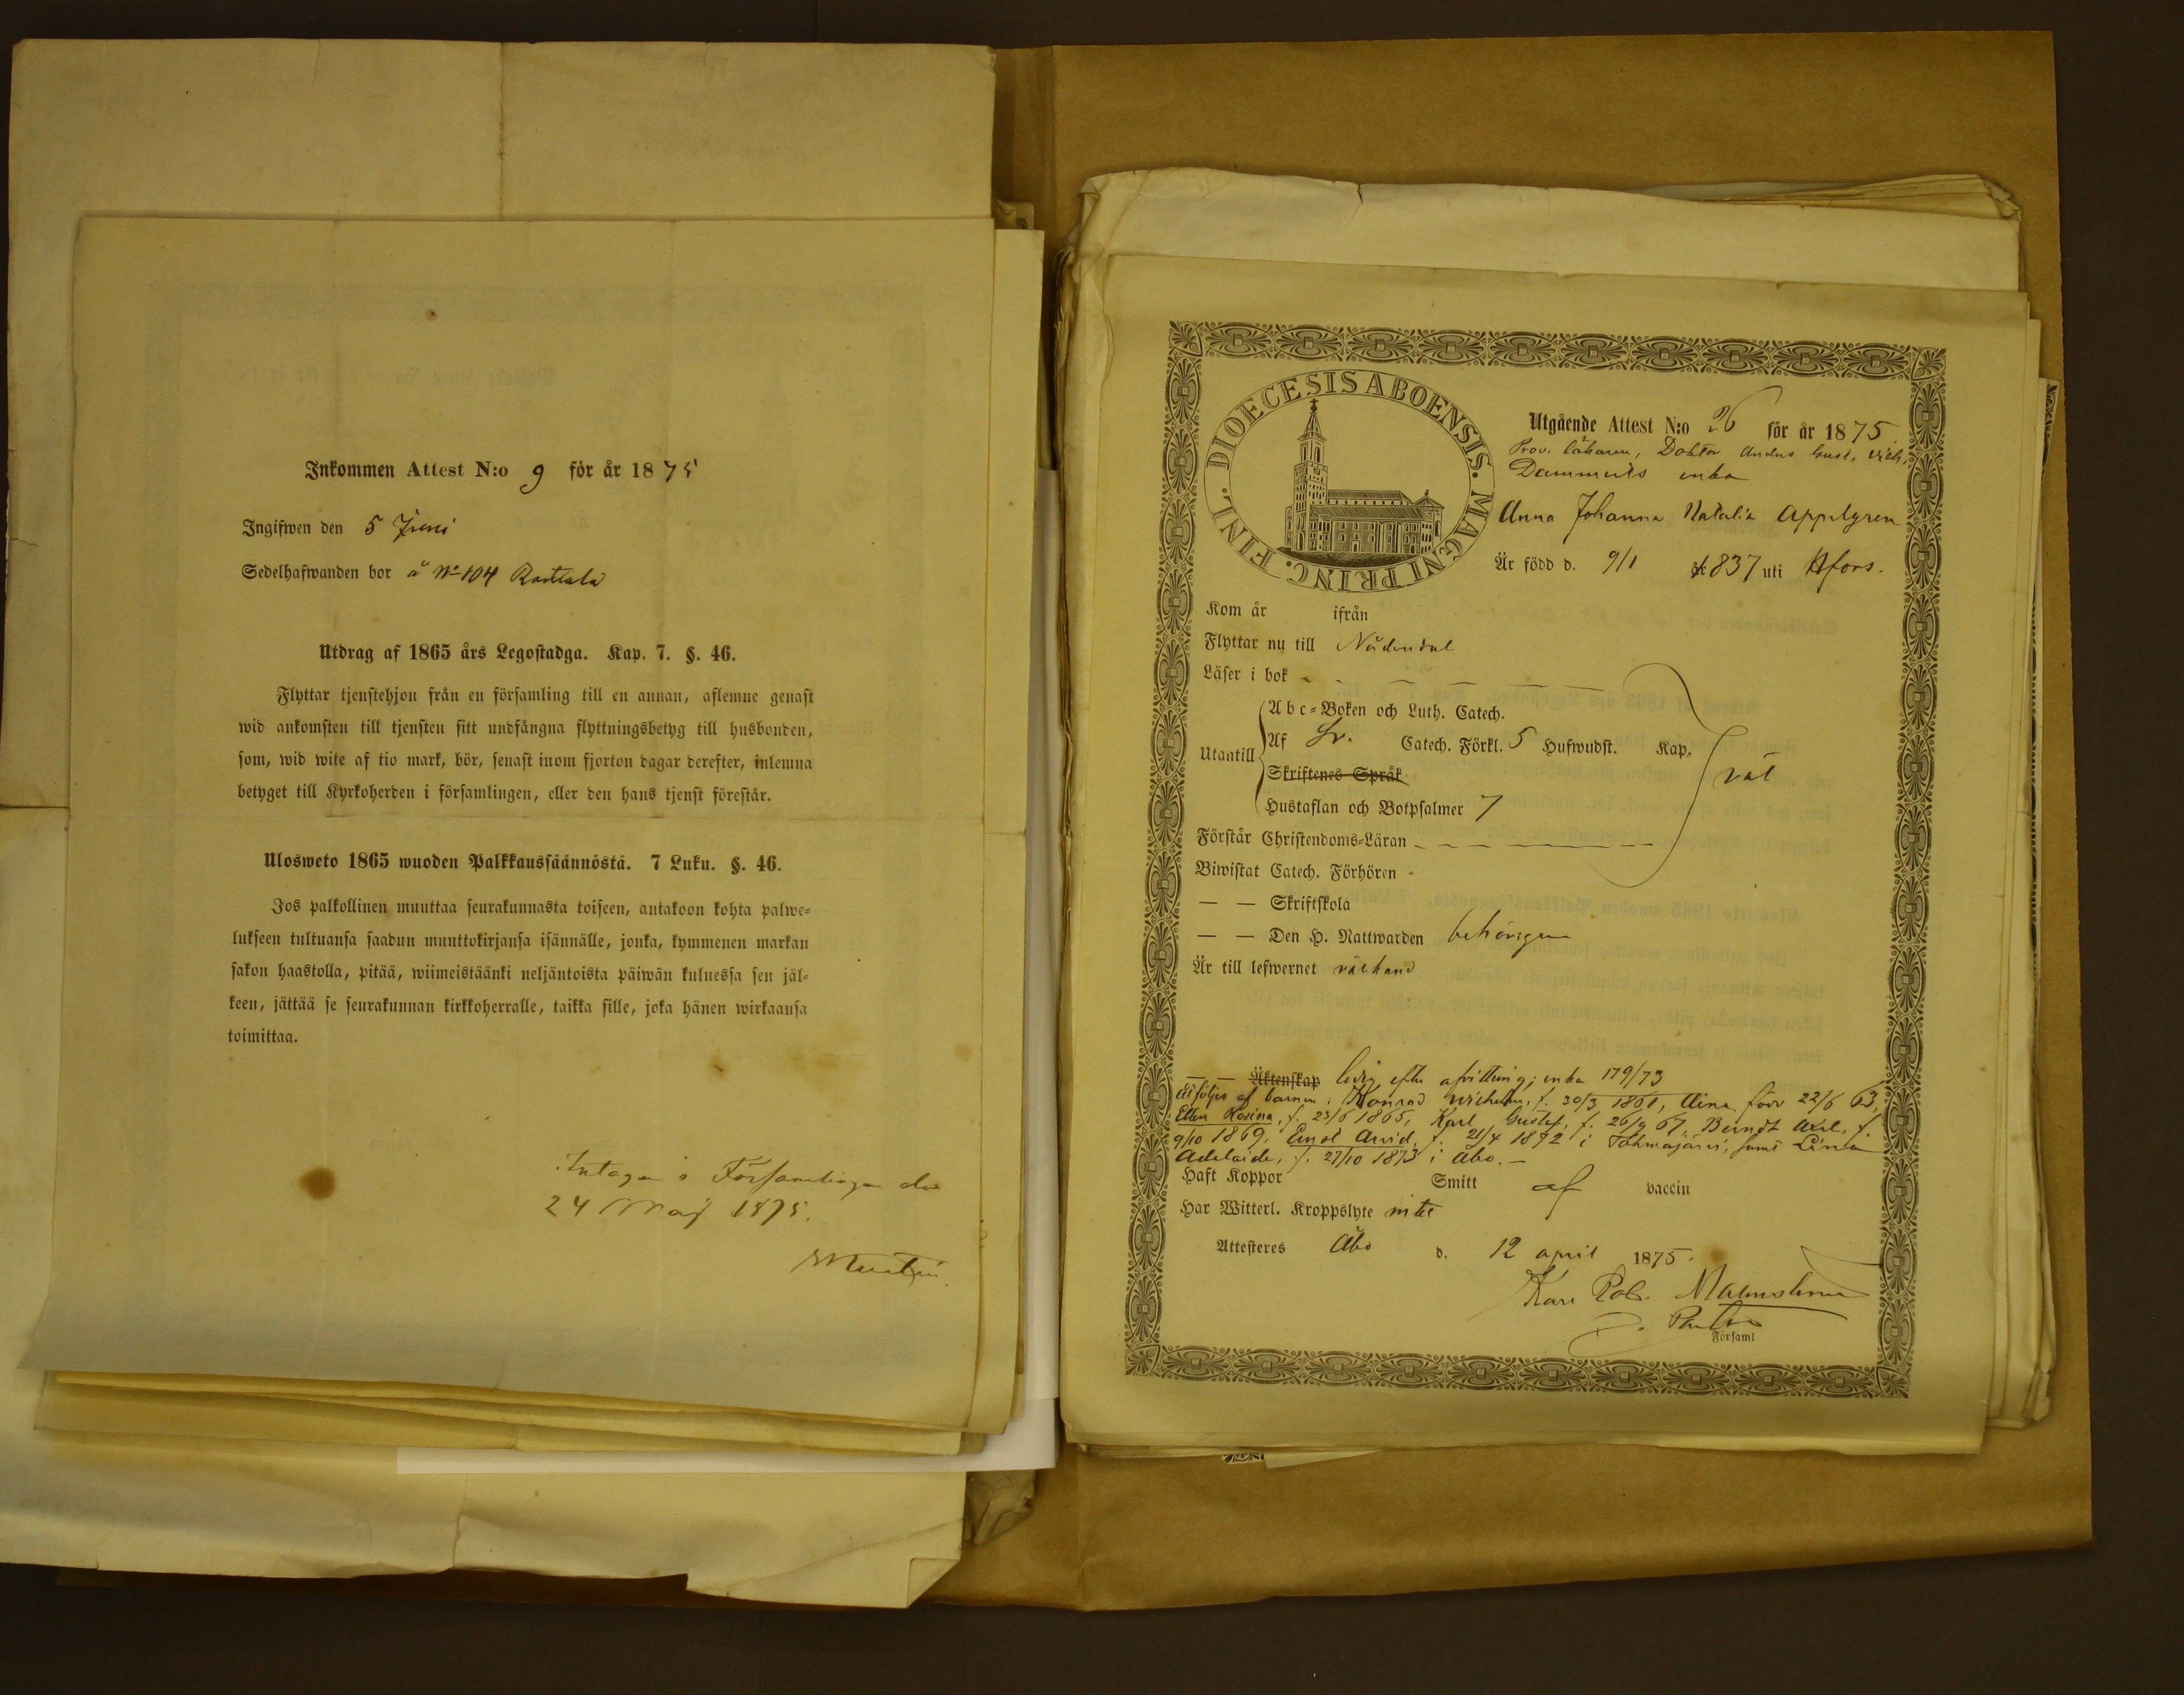 Inkommen Attest N:o 9 för år 1875
Ingifwen den 5 Juni
Sedelhafwanden bor å No 104
Utdrag af 1865 års Legostadga. Kap. 7. §. 46.
Flyttar tjenstehjon från en församling till en annan, aflemne genast
wid ankomsten till tjensten sitt undfångna flyttningsbetyg till husbonden,
som, wid wite af tio mark, bör, senast inom fjorton dagar derefter, inlemna
betyget till Kyrkoherden i församlingen, eller den hans tjenst förestår.
Ulosweto 1865 wuoden Palkkaussäännöstä. 7 Luku. §. 46.
Jos palkollinen muuttaa seurakunnasta toiseen, antakoon kohta palwe-
lukseen tultuansa saadun muuttokirjansa isännälle, jonka, kymmenen markan
sakon haastolla, pitää, wiimeistäänki neljäntoista päiwän kuluessa sen jäl-
keen, jättää se seurakunnan kirkkoherralle, taikka sille, joka hänen wirkaansa
toimittaa.
Intagen i Församlingen den
24 Maj 1875.
DIOECESIS ABOENSIS. MAGNI PRINC. FINL.
Utgående Attest N:o 26 för år 1875
Prov. läkaren, Doktor Anders Gust. Wilh.
Dammerts enka
Anna Johanna Natalia Appelgren
Är född d. 9/1 1837 uti Hfors.
Kom år ifrån
Flyttar nu till Nådendal
Läser i bok
Abc-Boken och Luth. Catech.
Utantill Af Sv. Catech. Förkl. 5 Hufwudst. Kap.
Skriftenes Språk
väl
Hustaflan och Botpsalmer 7
Förstår Christendoms-Läran
Biwistat Catech. Förhören
— — Skriftskola
— — Den H. Nattwarden behörigen
Är till lefwernet välkänd
— — Äktenskap ledig efter afvittring; enka 179/73
Åtföljes af barnen: Konrad Wilhelm, f. 30/3 1861, Aina 22/6 63,
Ellen Rosina, f. 23/6 1865, Karl Gustaf, f. 26/9 67, Berndt Axel, f.
9/10 1869, Ernst Arvid, f. 21/4 1872 i Tohmajärvi, samt Lina
Adelaide, f. 27/10 1873 i Åbo. —
Haft Koppor Smitt af vaccin
Har Witterl. Kroppslyte intet
Attesteres Åbo d. 12 april 1875.
Karl Rob. Malmström
Församl